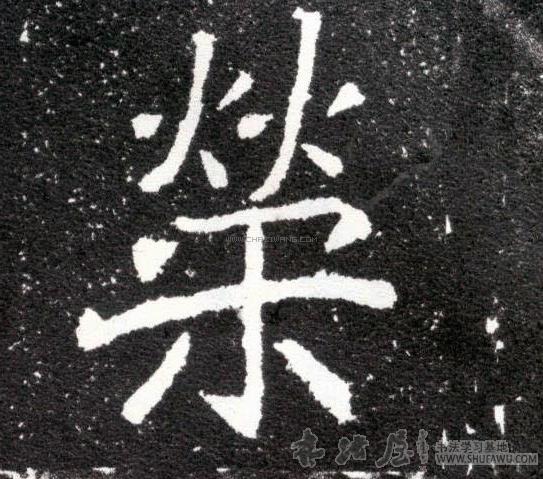 榮
WWW.CHAZIWANG.COM
书法学习基地
WWW.SHUFAWU.COM